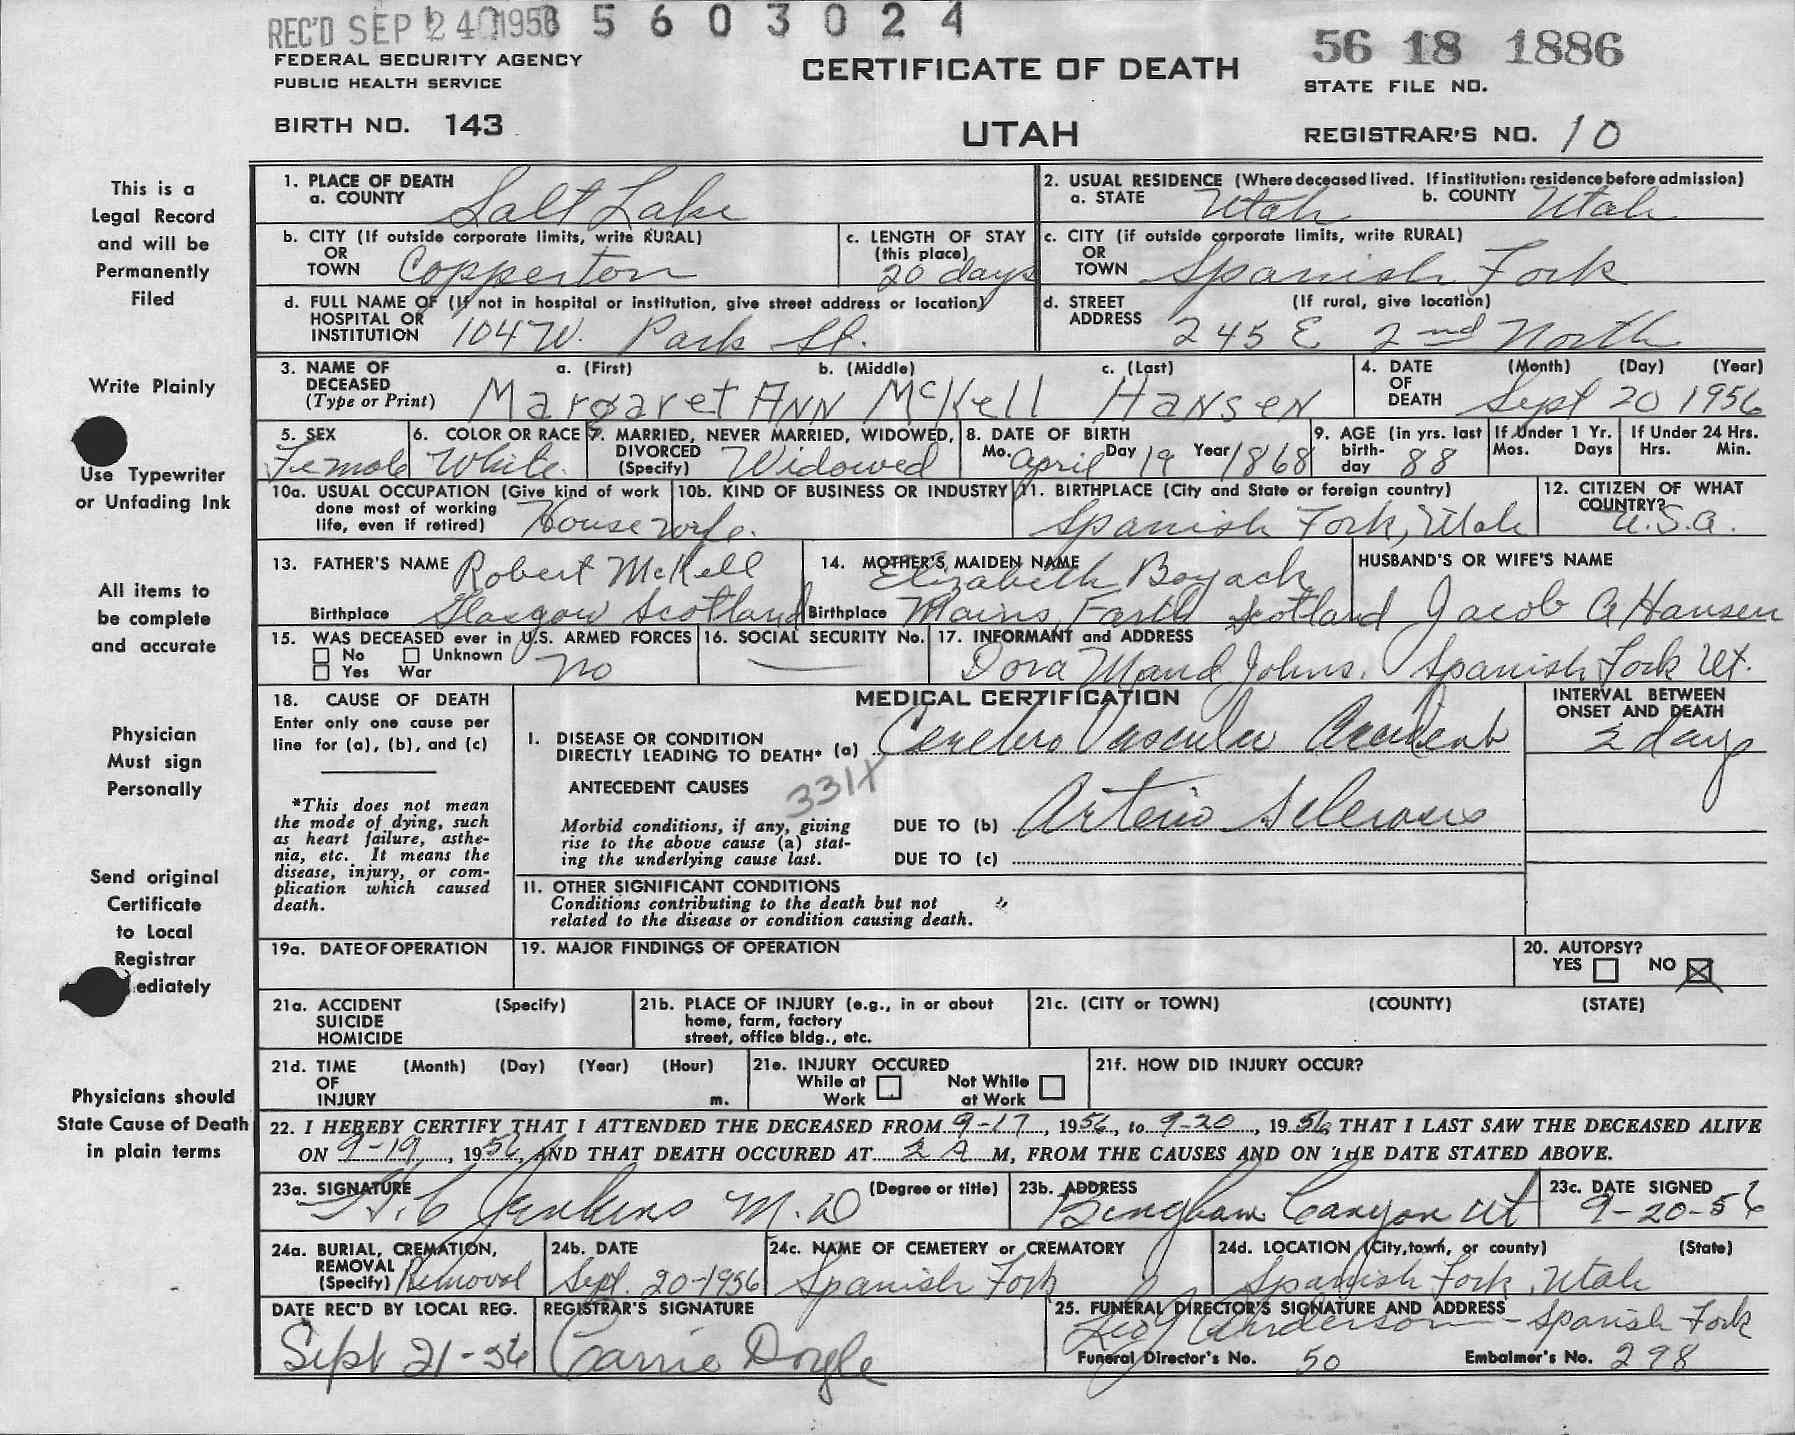 REC'D SEP 24 1956 5 6 0 3 0 2 4
FEDERAL SECURITY AGENCY
PUBLIC HEALTH SERVICE
CERTIFICATE OF DEATH
56 18 1886
STATE FILE NO.
BIRTH NO. 143
UTAH
REGISTRAR'S NO. 10
This is a
Legal Record
and will be
Permanently
Filed
Write Plainly
Use Typewriter
or Unfading Ink
All items to
be complete
and accurate
Physician
Must sign
Personally
Send original
Certificate
to Local
Registrar
ediately
Physicians should
State Cause of Death
in plain terms
1. PLACE OF DEATH
a. COUNTY Salt Lake
2. USUAL RESIDENCE (Where deceased lived. If institution: residence before admission)
a. STATE Utah b. COUNTY Utah
b. CITY (If outside corporate limits, write RURAL)
OR
TOWN Copperton
c. LENGTH OF STAY
(this place)
20 days
c. CITY (if outside corporate limits, write RURAL)
OR
TOWN Spanish Fork
d. FULL NAME OF (If not in hospital or institution, give street address or location)
HOSPITAL OR
INSTITUTION 104 W. Park St.
d. STREET (If rural, give location)
ADDRESS 245 E 2nd North
3. NAME OF a. (First) b. (Middle) c. (Last)
DECEASED
(Type or Print) Margaret ANN McKell HANSEN
4. DATE (Month) (Day) (Year)
OF
DEATH Sept 20 1956
5. SEX
Female
6. COLOR OR RACE
White
7. MARRIED, NEVER MARRIED, WIDOWED,
DIVORCED
(Specify) Widowed
8. DATE OF BIRTH
Mo. April Day 19 Year 1868
9. AGE (in yrs. last
birth-
day 88
If Under 1 Yr.
Mos. Days
If Under 24 Hrs.
Hrs. Min.
10a. USUAL OCCUPATION (Give kind of work
done most of working
life, even if retired) Housewife.
10b. KIND OF BUSINESS OR INDUSTRY
11. BIRTHPLACE (City and State or foreign country)
Spanish Fork, Utah
12. CITIZEN OF WHAT
COUNTRY?
U.S.A.
13. FATHER'S NAME Robert McKell
Birthplace Glasgow Scotland
14. MOTHER'S MAIDEN NAME
Elizabeth Boyack
Birthplace Mains, Scotland
HUSBAND'S OR WIFE'S NAME
Jacob A Hansen
15. WAS DECEASED ever in U.S. ARMED FORCES
No Unknown
Yes War no
16. SOCIAL SECURITY No.
17. INFORMANT and ADDRESS
Dora Maud Johns. Spanish Fork Ut.
18. CAUSE OF DEATH
Enter only one cause per
line for (a), (b), and (c)
*This does not mean
the mode of dying, such
as heart failure, asthe-
nia, etc. It means the
disease, injury, or com-
plication which caused
death.
MEDICAL CERTIFICATION
INTERVAL BETWEEN
ONSET AND DEATH
I. DISEASE OR CONDITION
DIRECTLY LEADING TO DEATH* (a) Cerebro Vascular Accident
2 days
ANTECEDENT CAUSES 331X
Morbid conditions, if any, giving
rise to the above cause (a) stat-
ing the underlying cause last.
DUE TO (b) Arterio Sclerosis
DUE TO (c)
II. OTHER SIGNIFICANT CONDITIONS
Conditions contributing to the death but not
related to the disease or condition causing death.
19a. DATE OF OPERATION
19. MAJOR FINDINGS OF OPERATION
20. AUTOPSY?
YES NO
21a. ACCIDENT (Specify)
SUICIDE
HOMICIDE
21b. PLACE OF INJURY (e.g., in or about
home, farm, factory
street, office bldg., etc.
21c. (CITY or TOWN) (COUNTY) (STATE)
21d. TIME (Month) (Day) (Year) (Hour)
OF
INJURY m.
21e. INJURY OCCURED
While at Not While
Work at Work
21f. HOW DID INJURY OCCUR?
22. I HEREBY CERTIFY THAT I ATTENDED THE DECEASED FROM 9-17, 1956, to 9-20, 1956, THAT I LAST SAW THE DECEASED ALIVE
ON 9-19, 1956, AND THAT DEATH OCCURED AT 2 A M, FROM THE CAUSES AND ON THE DATE STATED ABOVE.
23a. SIGNATURE (Degree or title)
Jenkins M.D
23b. ADDRESS
Bingham Canyon Ut
23c. DATE SIGNED
9-20-56
24a. BURIAL, CREMATION,
REMOVAL
(Specify) Removal
24b. DATE
Sept. 20-1956
24c. NAME OF CEMETERY or CREMATORY
Spanish Fork
24d. LOCATION (City, town, or county) (State)
Spanish Fork, Utah
DATE REC'D BY LOCAL REG.
Sept 21-56
REGISTRAR'S SIGNATURE
Carrie Doyle
25. FUNERAL DIRECTOR'S SIGNATURE AND ADDRESS
Anderson - Spanish Fork
Funeral Director's No. 50 Embalmer's No. 298